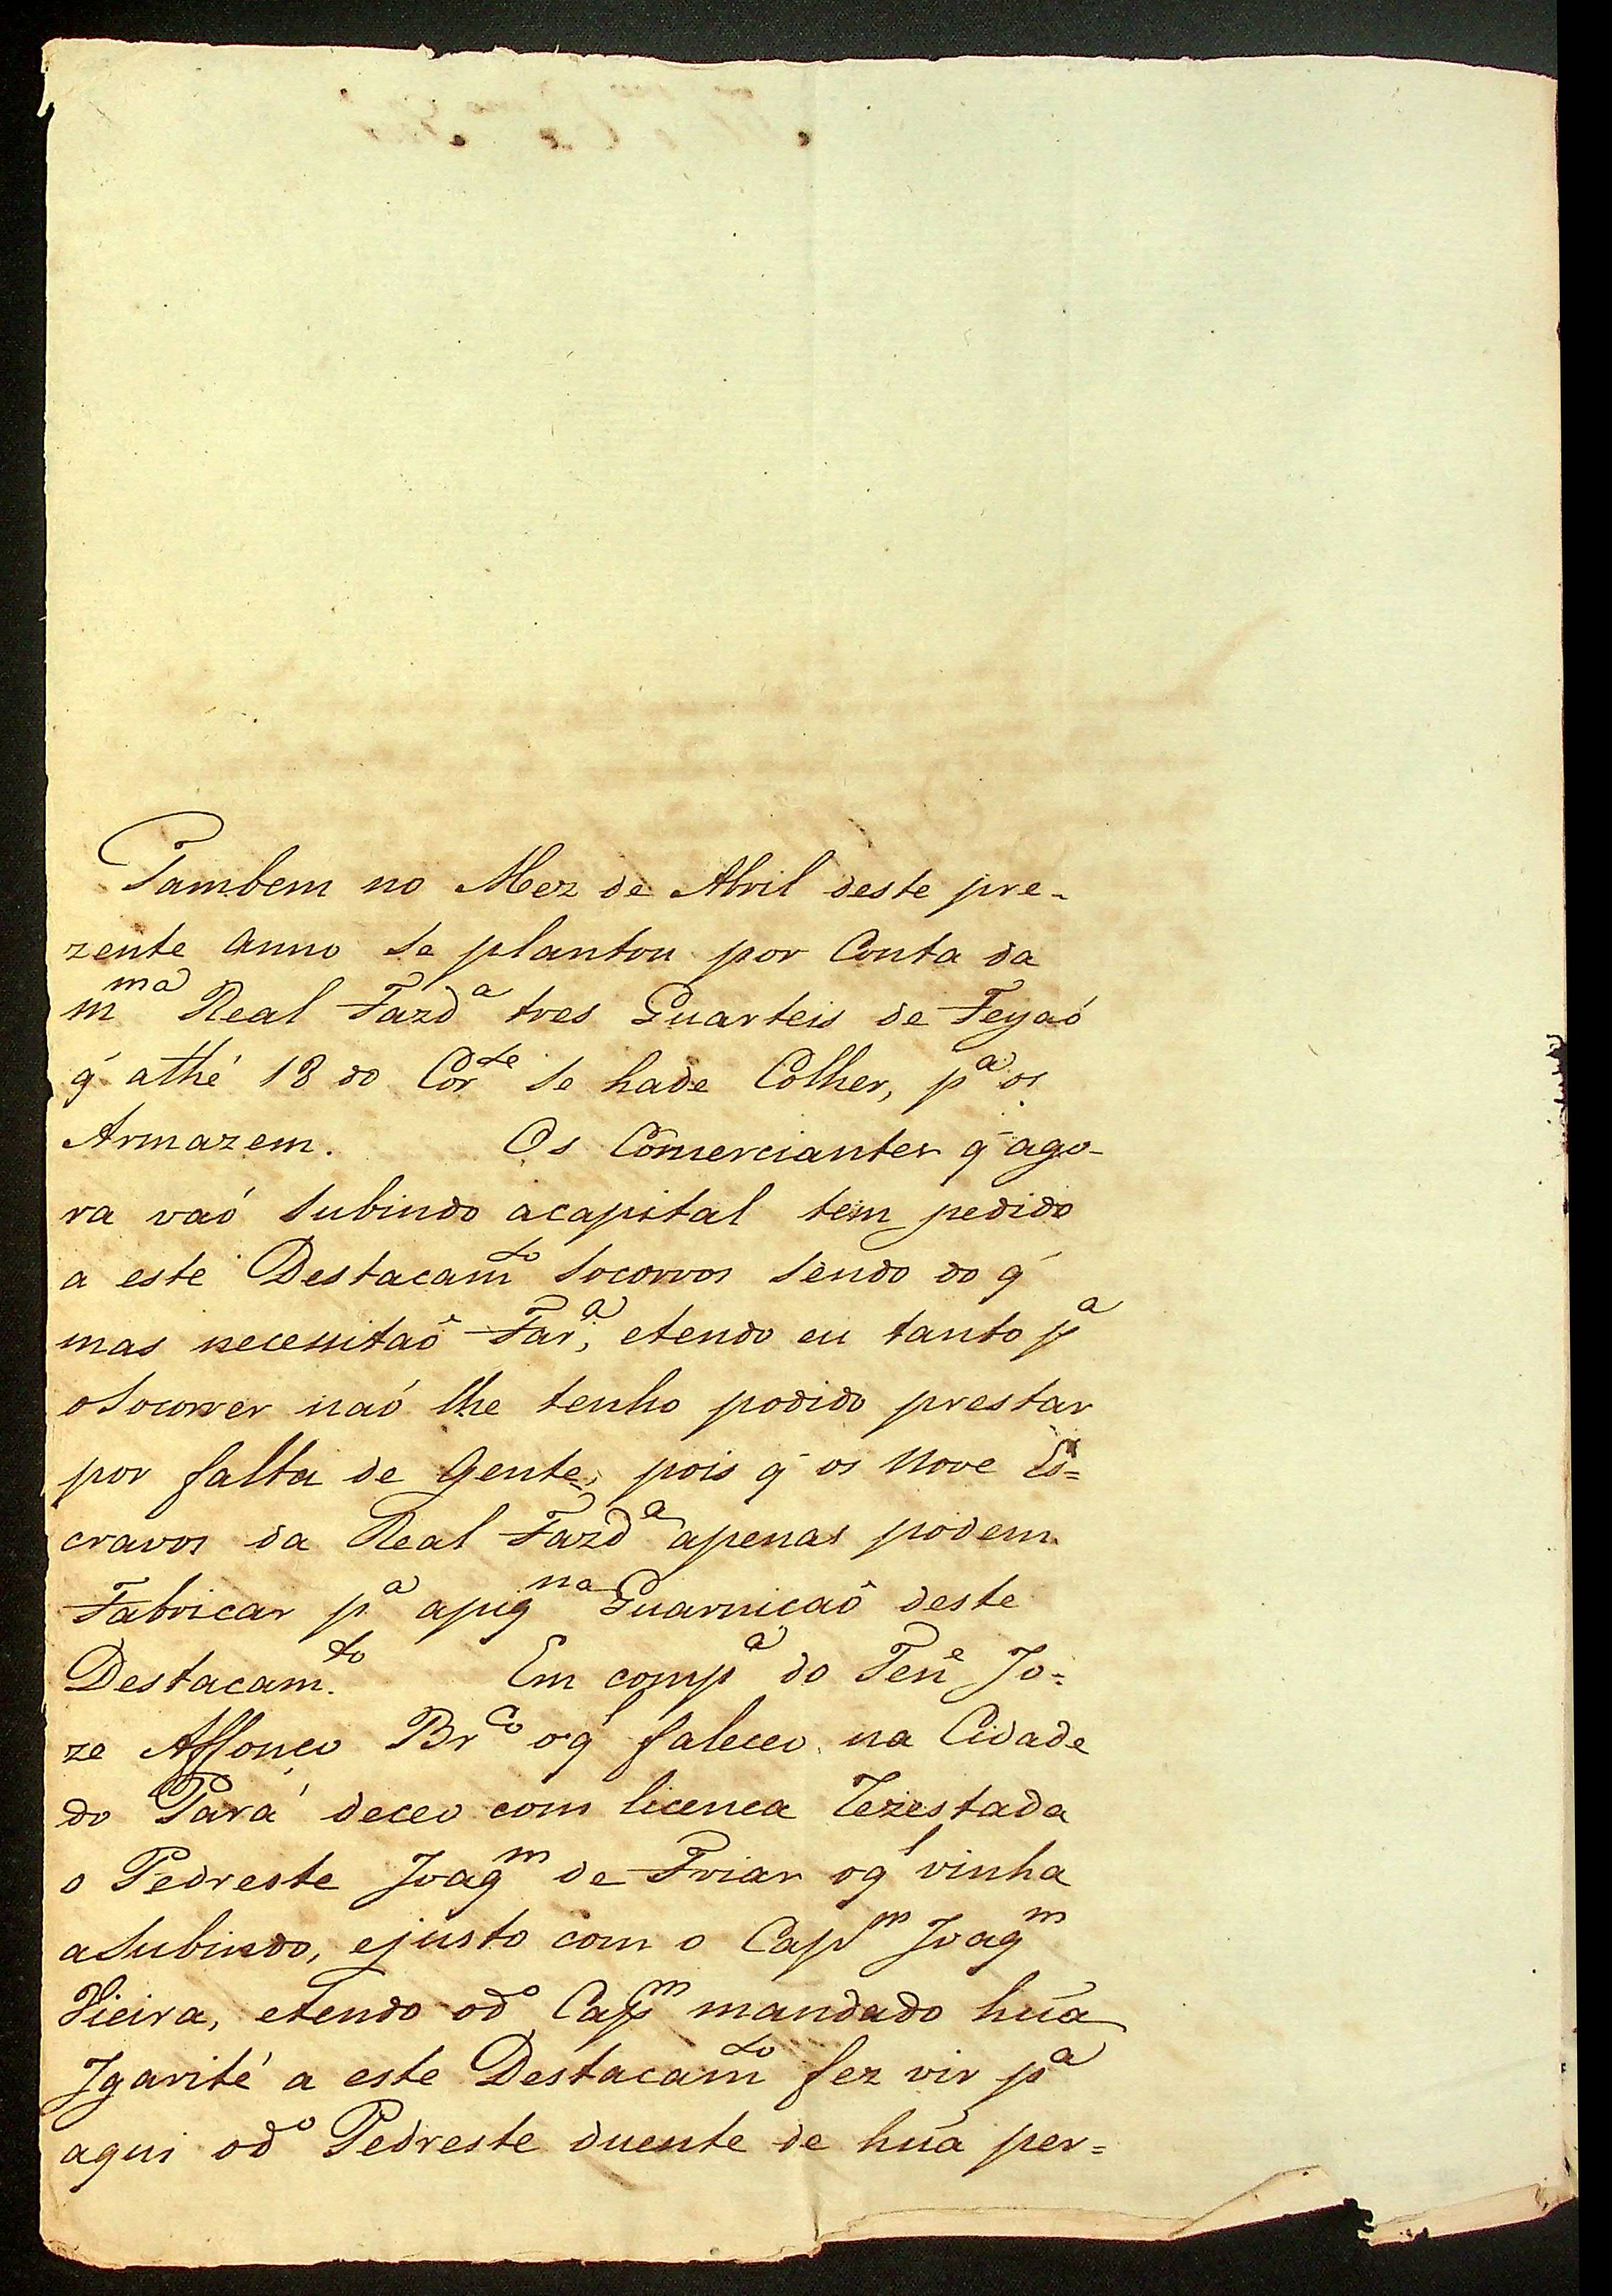 Tambem no Mez de Abril deste pre-
zente anno se plantou por Conta da
m.ma Real Fazd.a tres Quarteis de Feyaó
q' athé 18 do Cor.te se hade Colher, p.a os
Armazem. Os Comerciantes q' ago-
ra vaó subindo acapital tem pedido
a este Destacam.to socorros sendo do q'
mas necessitaõ Far.a, etendo eu tanto p.a
oSocorrer naó lhe tenho podido prestar
por falta de Gente, pois q' os Nove Es=
cravos da Real Fazd.a apenas podem
Fabricar p.a apiq.na Guarniçaõ deste
Destacam.to Em comp.a do Ten.e Jo=
ze Affonço Br.co oq.l faleceo na Cidade
do Pará deceo com licenca
o Pedreste Joaq.m de Friar oq.l vinha
aSubindo, ejusto com o Cap.m Joaq.m
Vieira, etendo od.o Cap.m mandado hua
Jgarité a este Destacam.to fez vir p.a
aqui od.o Pedreste duente de hua per=